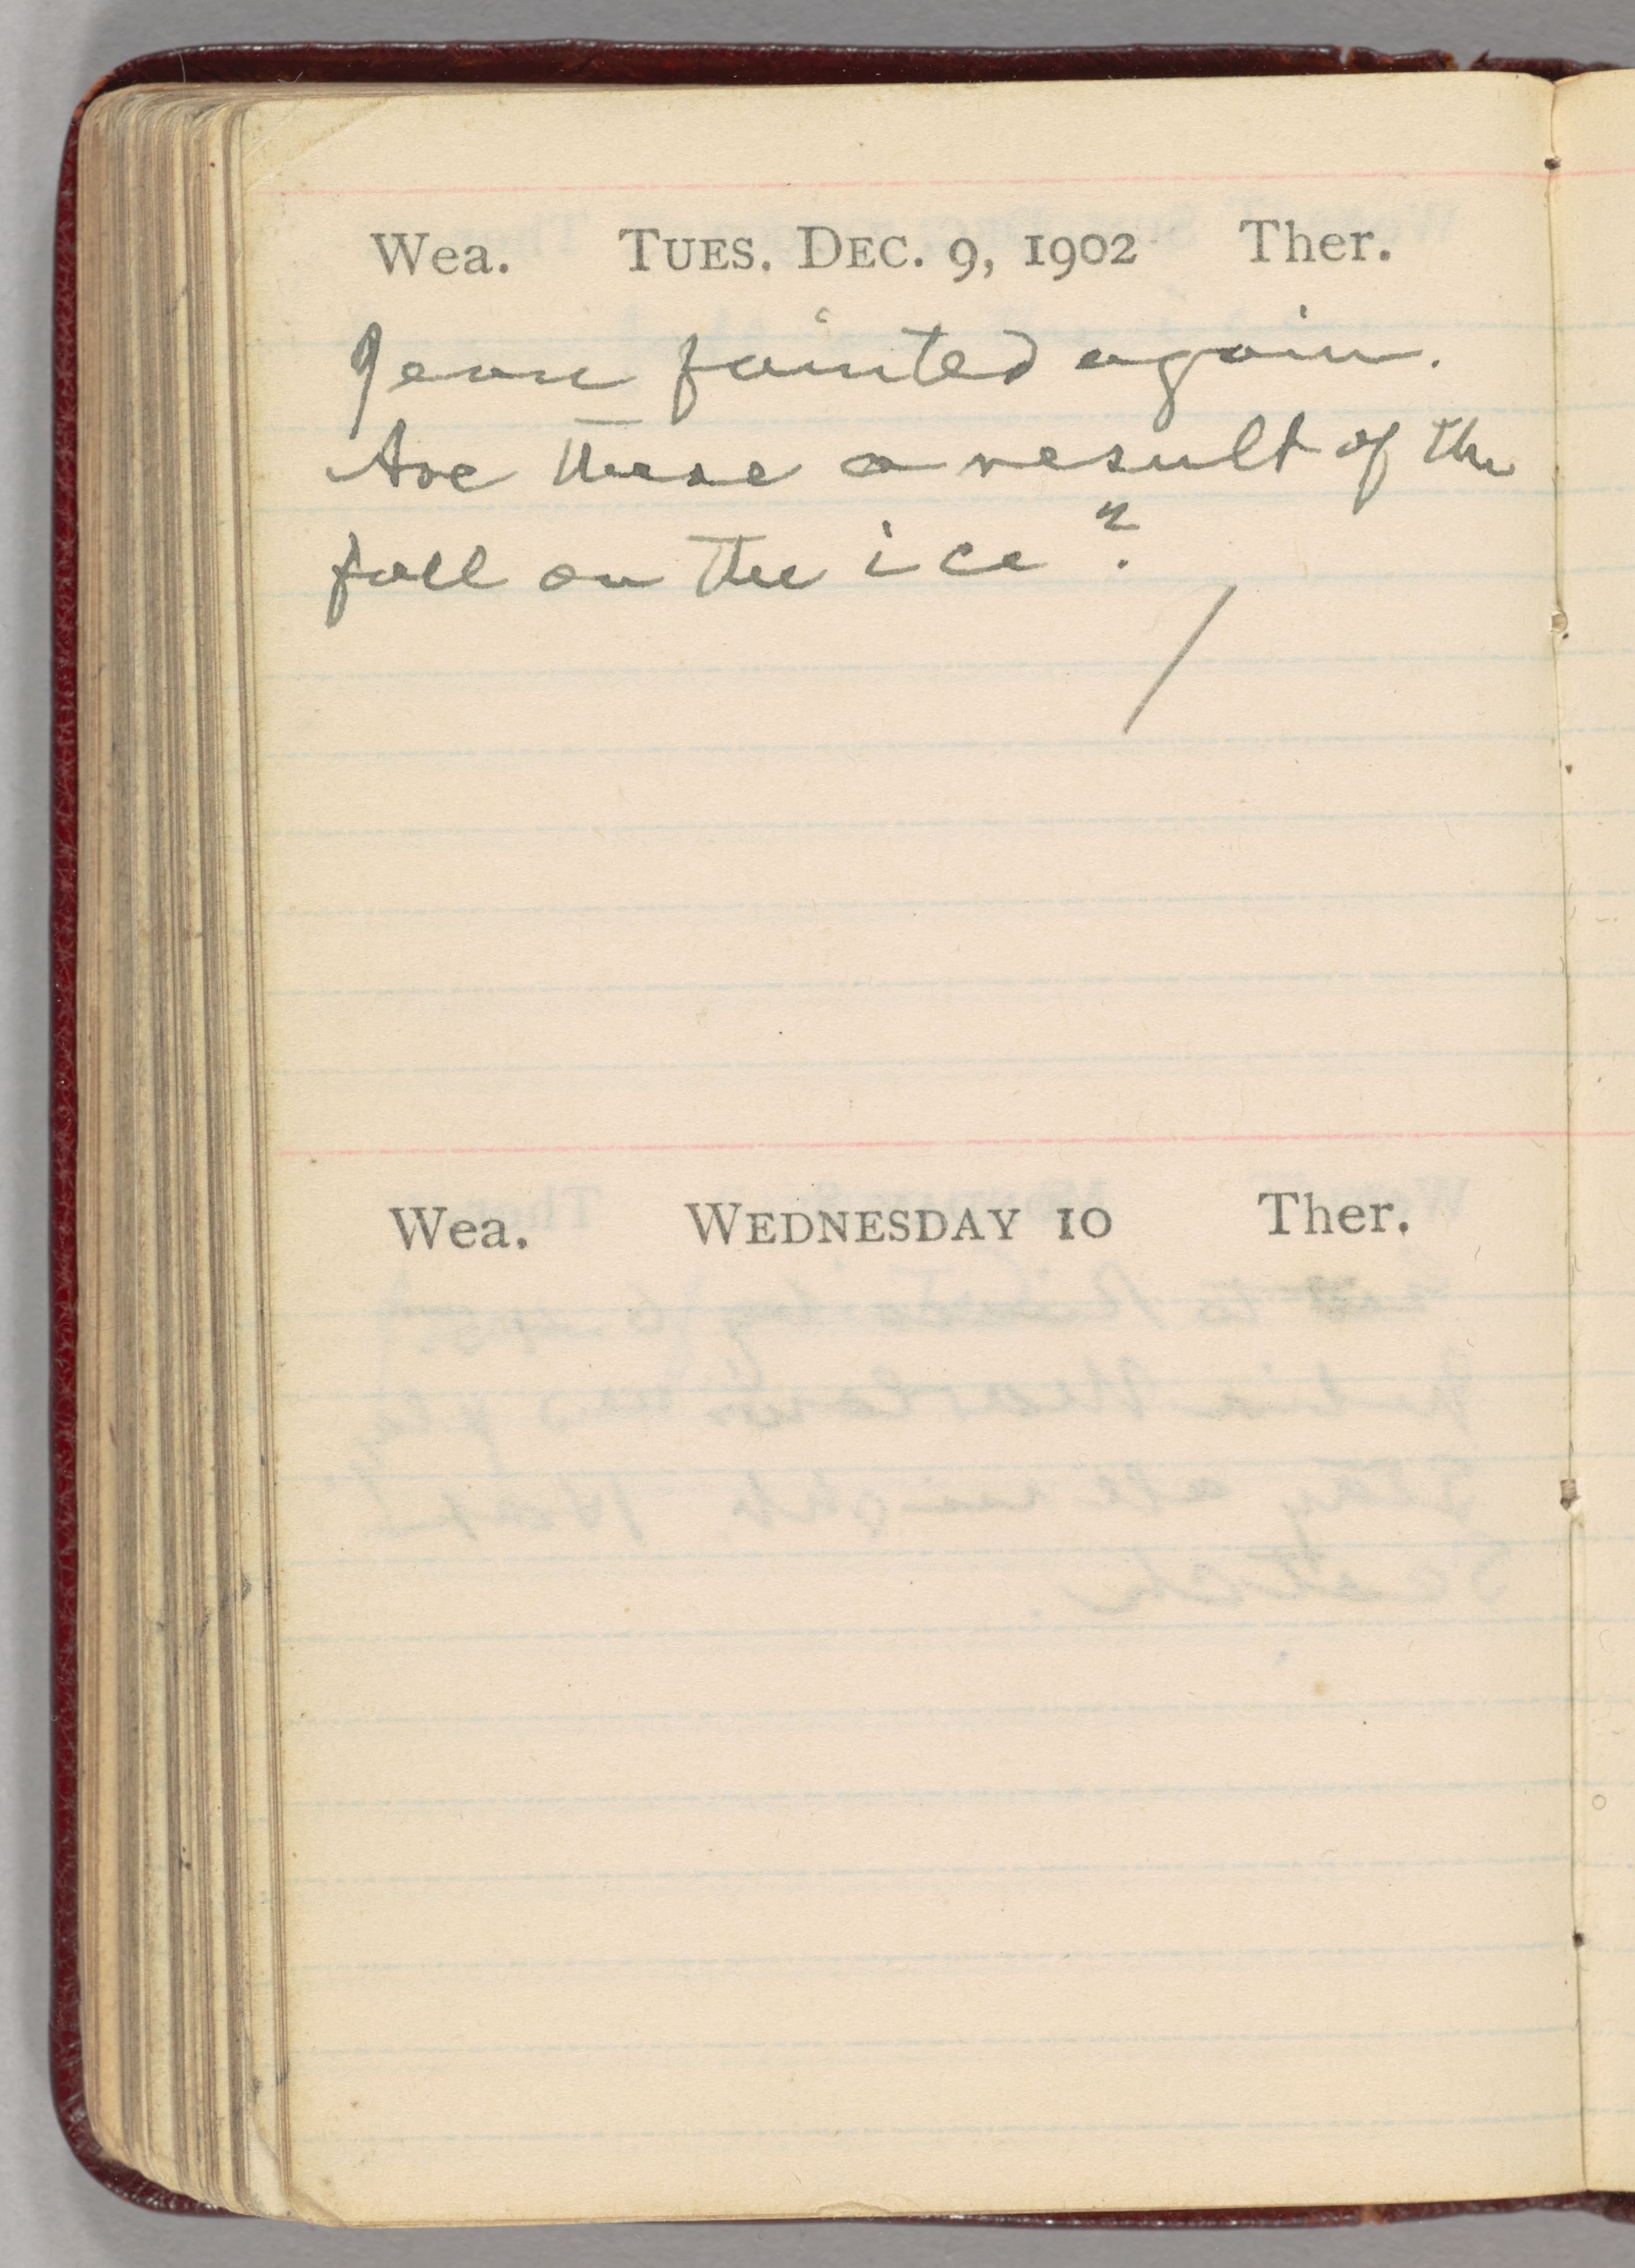 Wea. TUES. DEC. 9, 1902 Ther.
Jean fainted again.
Are these a result of the
fall on the ice?
Wea. WEDNESDAY 10 Ther.